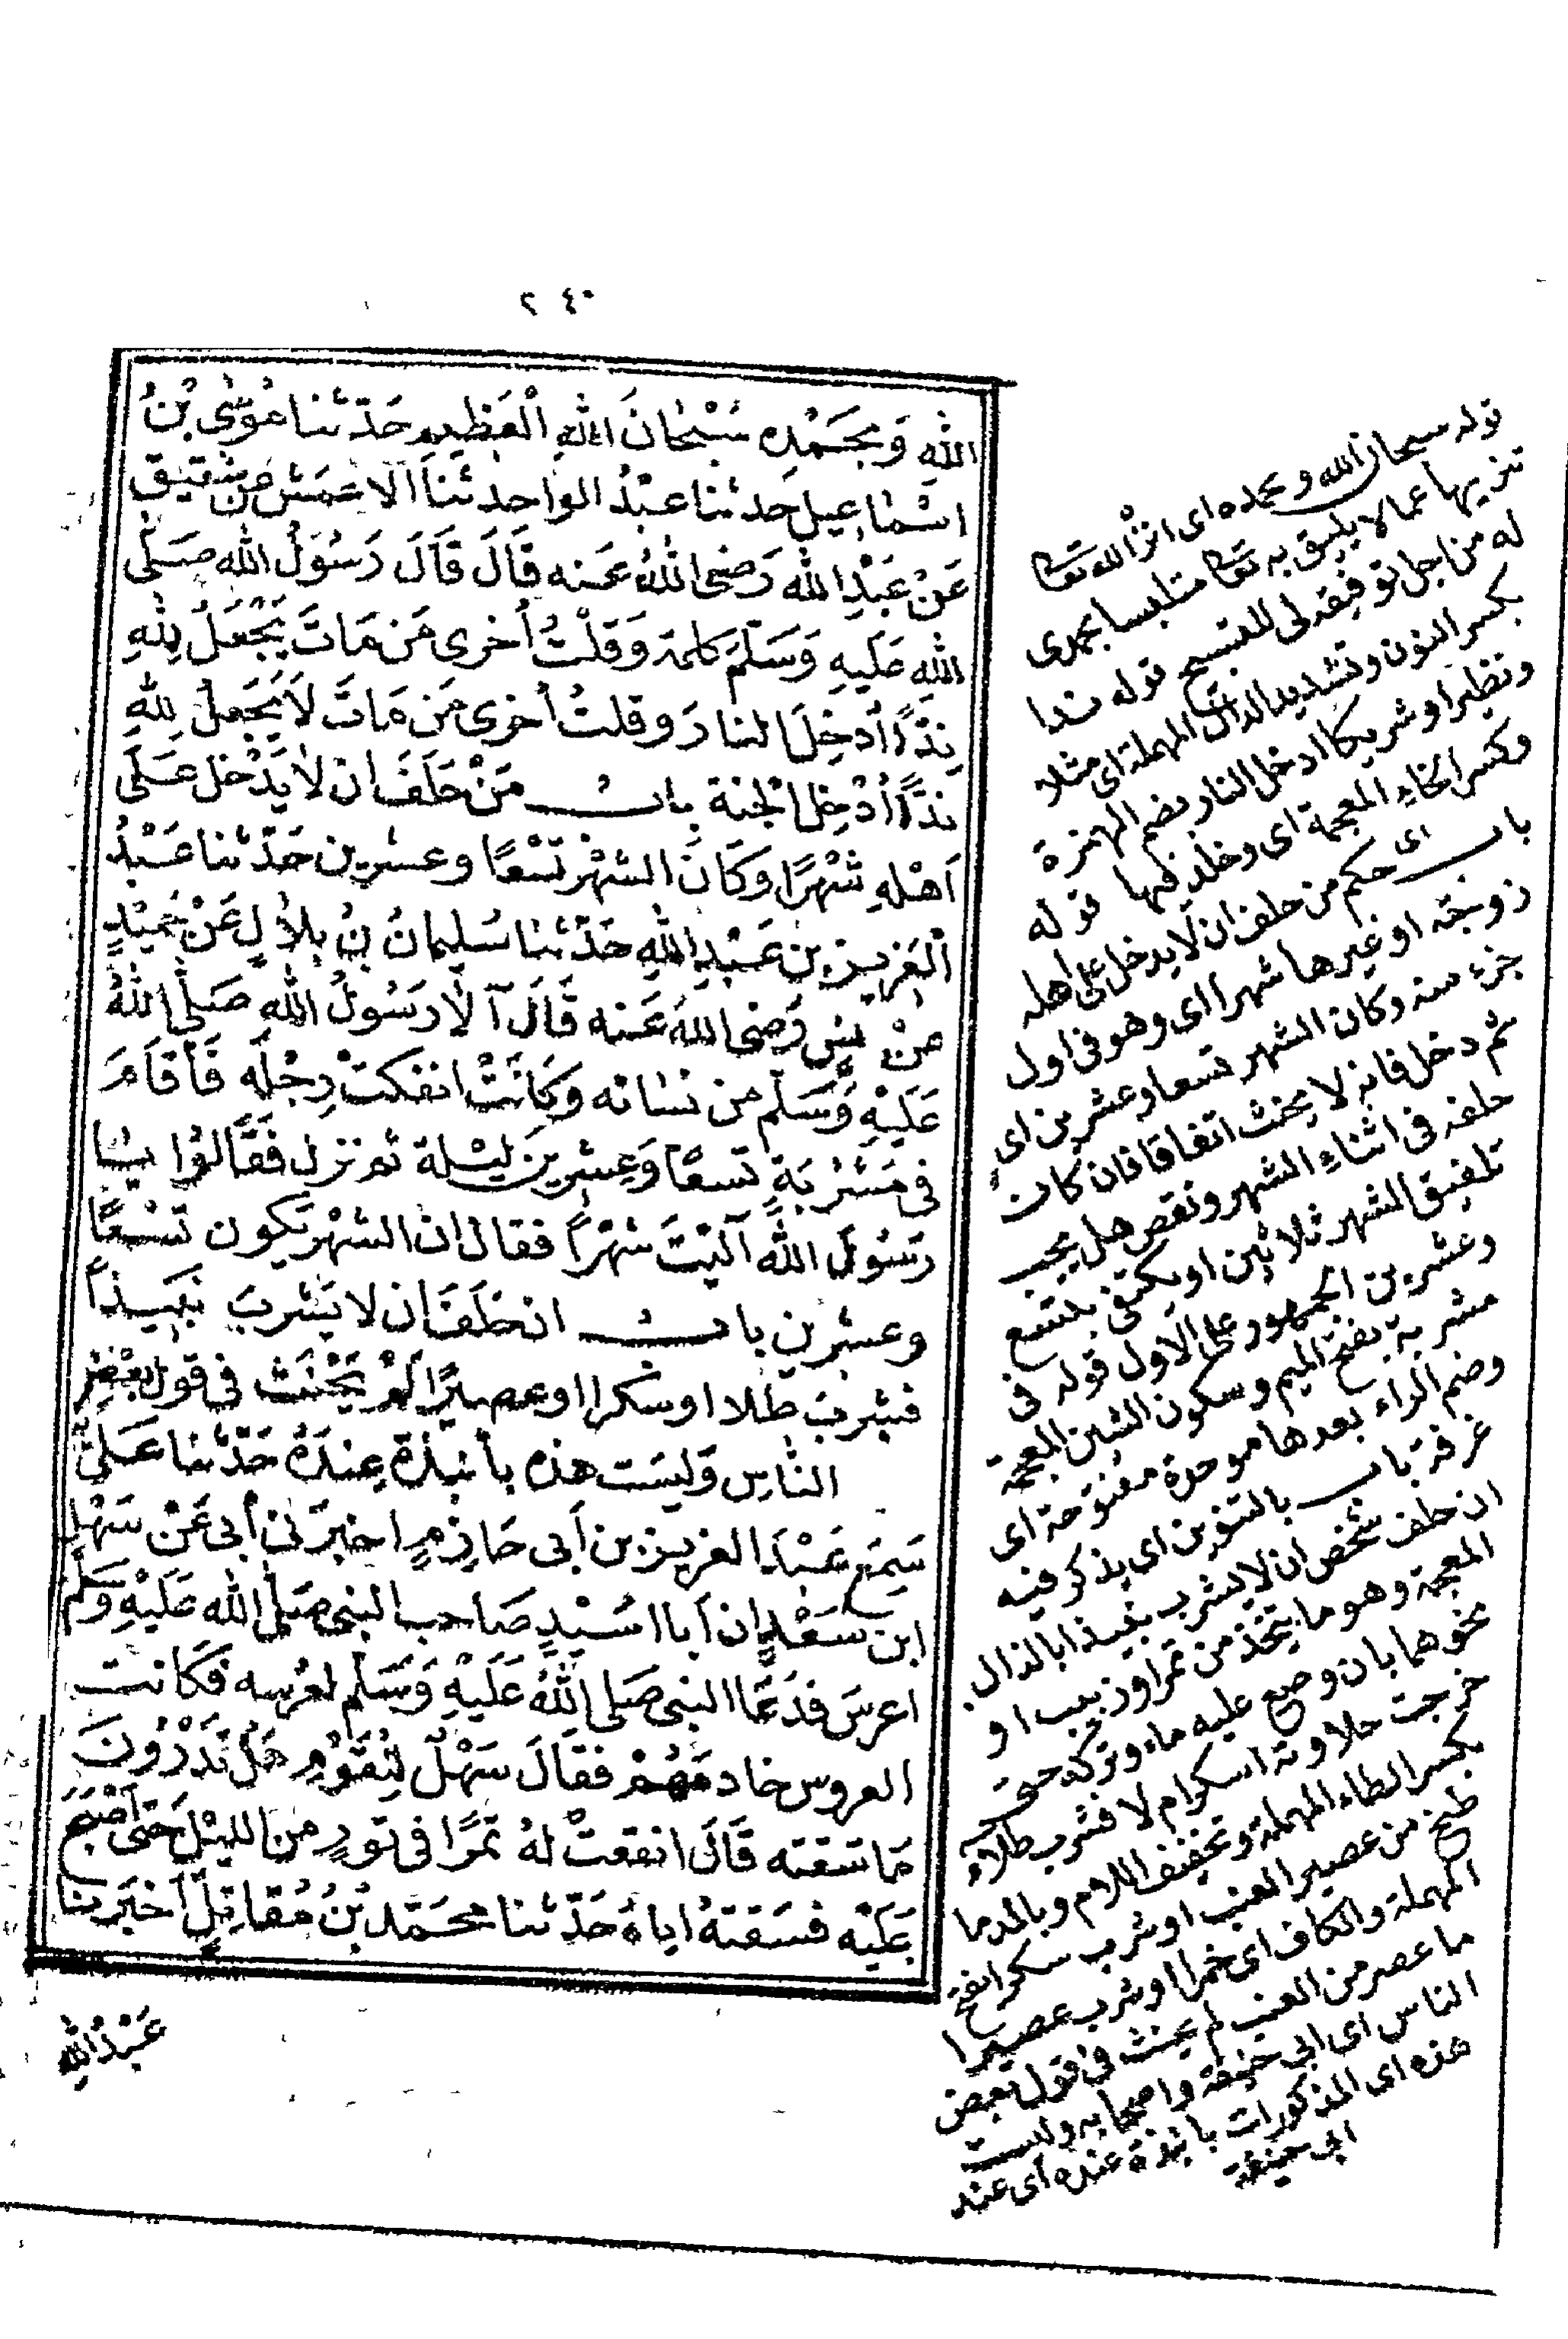 ٢٤٠
الله وَبِحَمْدِه سُبْحَانَ اللهِ الْعَظِيمِ حَدّثنا مُوسَى بْنُ
اسْمَاعِيل حَدثنا عَبْدُ الواحِد ثنا الاعمَش عن شقيق
عَنْ عَبْدِ الله رَضى اللهُ عَنه قَالَ قَالَ رَسُولُ الله صَلَّى
الله عَلَيهِ وَسَلّم كلمة وَقلْتُ أخرى مَن مَاتَ يَجْعَلُ لِلّهِ
نِدًّا أُدْخِلَ النارَ وقلتُ أخرى مَن مَاتَ لَا يَجَعلُ لِلّهِ
نِدًّا أُدْخِلَ الجنة باب مَنْ حَلَفَ ان لا يَدْخل عَلَى
اَهْلهِ شْهرًا وَكَانَ الشهْرُ تسْعًا وعشرين حَدّثنا عَبْدُ
الْعَزيزبن عَبْدِ اللهِ حَدّثنا سُليمانُ بنُ بِلالٍ عَنْ حُمَيْدٍ
عنْ انس رَضى الله عَنه قَالَ آلَا رَسُولُ اللهِ صَلَّى اللهُ
عَلَيْهِ وَسَلّم من نسائه وَكَانَتْ انفكتْ رِجْلُه فَأقَامَ
فى مَشرُبَةٍ تسعًا وَعِشرِينَ ليْلة ثم نزل فَقَالوُا يَا
رَسُولَ اللهِ آليْتَ شَهْرًا فقال ان الشهْر يَكون تسْعًا
وعشرين باب ان حَلَفَ ان لا يَشربَ نَبِيذاً
فشربَ طلاا او سَكرا او عصيرًا لمْ يَحْنَث فى قول بَعْضِ
النَّاسِ وَليسَت هذه بأنبذة عِندَهُ حَدّثنا عَلىٌّ
سَمِعَ عَبْدَ العزيزبن أبى حَازِمٍ اخبرَنى أبى عَنْ سَهْلِ
ابن سَعْدٍ ان اَبا اسَيْدٍ صَاحب النبى صَلى الله عَلَيْهِ وَسَلم
اعرسَ فدَعَا النبى صَلى اللهُ عَلَيْهِ وَسَلّم لعُرسِه فَكَانت
العروس خادمَهُمْ فقَالَ سَهْلٌ لِلقَوْمِ هَلْ تَدْرُونَ
مَا سَقته قَالَ انقعتْ لهُ تمرًا فى تَورٍ من الليْل حَتى أصْبَحَ
عَلَيْه فسَقتهُ اياهُ حَدّثنا محَمّد بْنُ مُقاتِلٍ أخبَرَنا
عَبْدُ اللهِ
قوله سبحان الله وبحمده اى انزه الله تعا
تنزيها عما لا يليق به تعا متلبسا بحمدى
له من اجل توفيقه لى للتسبيح قوله ندا
بكسر النون وتشديد الدال المهملة اى مثلا
ونظيرا او شريكا ادخل النار بضم الهمزة
وكسر الخاء المعجمة اى وخلد فيها قوله
باب اى حكم من حلف ان لا يدخل على اهله
زوجته او غيرها شهرا اى وهو فى اول
جزء منه وكان الشهر تسعا وعشرين اى
ثم دخل فانه لا يحنث اتفاقا فان كان
حلفه فى اثناء الشهر ونقص هل يجب
تلفيق الشهر ثلاثين او يكتفى بتسع
وعشرين الجمهور على الاول قوله فى
مشربة بفتح الميم وسكون الشين المعجمة
وضم الراء بعدها موحدة مفتوحة اى
غرفة باب بالتنوين اى يذكر فيه
ان حلف شخص ان لا يشرب نبيذا بالذال
المعجمة وهو ما يتخذ من تمر او زبيب او
نحوهما بان وضع عليه ماء وتركه حتى
خرجت حلاوته اسكر ام لا فشرب طلاء
بكسر الطاء المهملة وتخفيف اللام وبالمد ما
طبخ من عصير العنب او شرب سكرا بفتح
المهملة والكاف اى خمرا او شرب عصيرا
ما عصر من العنب لم يحنث فى قول بعض
الناس اى ابى حنيفة واصحابه وليست
هذه اى المذكورات بانبذة عنده اى عند
ابى حنيفة